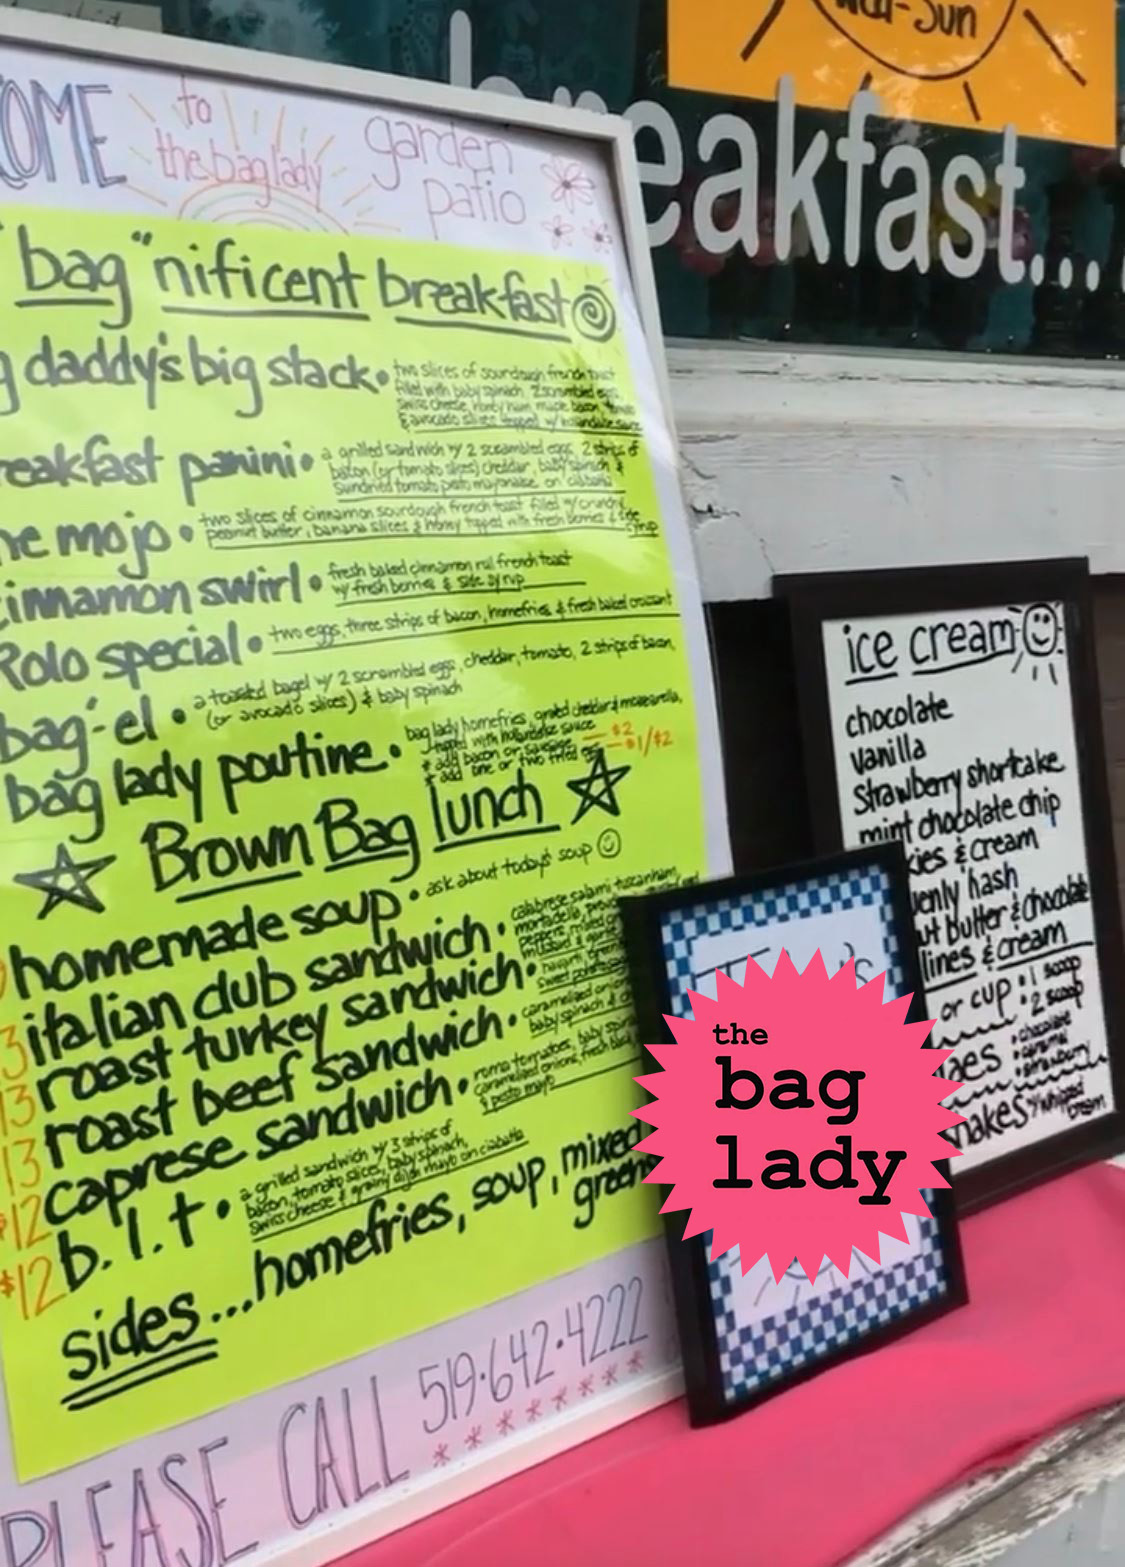 Wed-Sun
breakfast...
OME to the bag lady garden patio
"bag"nificent breakfast
daddy's big stack • two slices of sourdough french toast
filled with baby spinach, 2 scrambled eggs,
swiss cheese, honey ham, maple bacon, tomato
& avocado slices topped w/ hollandaise sauce
reakfast panini • a grilled sandwich w/ 2 scrambled eggs, 2 strips of
bacon (or tomato slices) cheddar, baby spinach &
sundried tomato pesto mayonaise on ciabatta
he mojo • two slices of cinnamon sourdough french toast filled w/ crunchy
peanut butter, banana slices & honey topped with fresh berries & side
syrup
cinnamon swirl • fresh baked cinnamon roll french toast
w/ fresh berries & side syrup
Rolo special • two eggs, three strips of bacon, homefries & fresh baked croissant
bag-el • a toasted bagel w/ 2 scrambled egg, cheddar, tomato, 2 strips of bacon,
(or avocado slices) & baby spinach
bag lady poutine • bag lady homefries, grated cheddar & mozzarella,
topped with hollandaise sauce
+ add bacon or sausage — $2
+ add one or two fried egg — $1/$2
Brown Bag lunch
homemade soup • ask about today's soup
3 italian club sandwich • calabrese salami, tuscan ham,
13 roast turkey sandwich •
13 roast beef sandwich • caramelized onions
baby spinach &
$12 caprese sandwich • roma tomatoes, baby spin
caramelized onions, fresh
& pesto mayo
$12 b.l.t • a grilled sandwich w/ 3 strips of
bacon, tomato slices, baby spinach,
swiss cheese & grainy dijon mayo on ciabatta
sides... homefries, soup, mixed
greens
PLEASE CALL 519·642·4222
ice cream
chocolate
vanilla
strawberry shortcake
mint chocolate chip
kies & cream
enly hash
ut butter & chocolate
lines & cream
or cup • 1 scoop
• 2 scoop
aes • chocolate
• caramel
• strawberry
hakes w/ whipped
cream
the
bag
lady